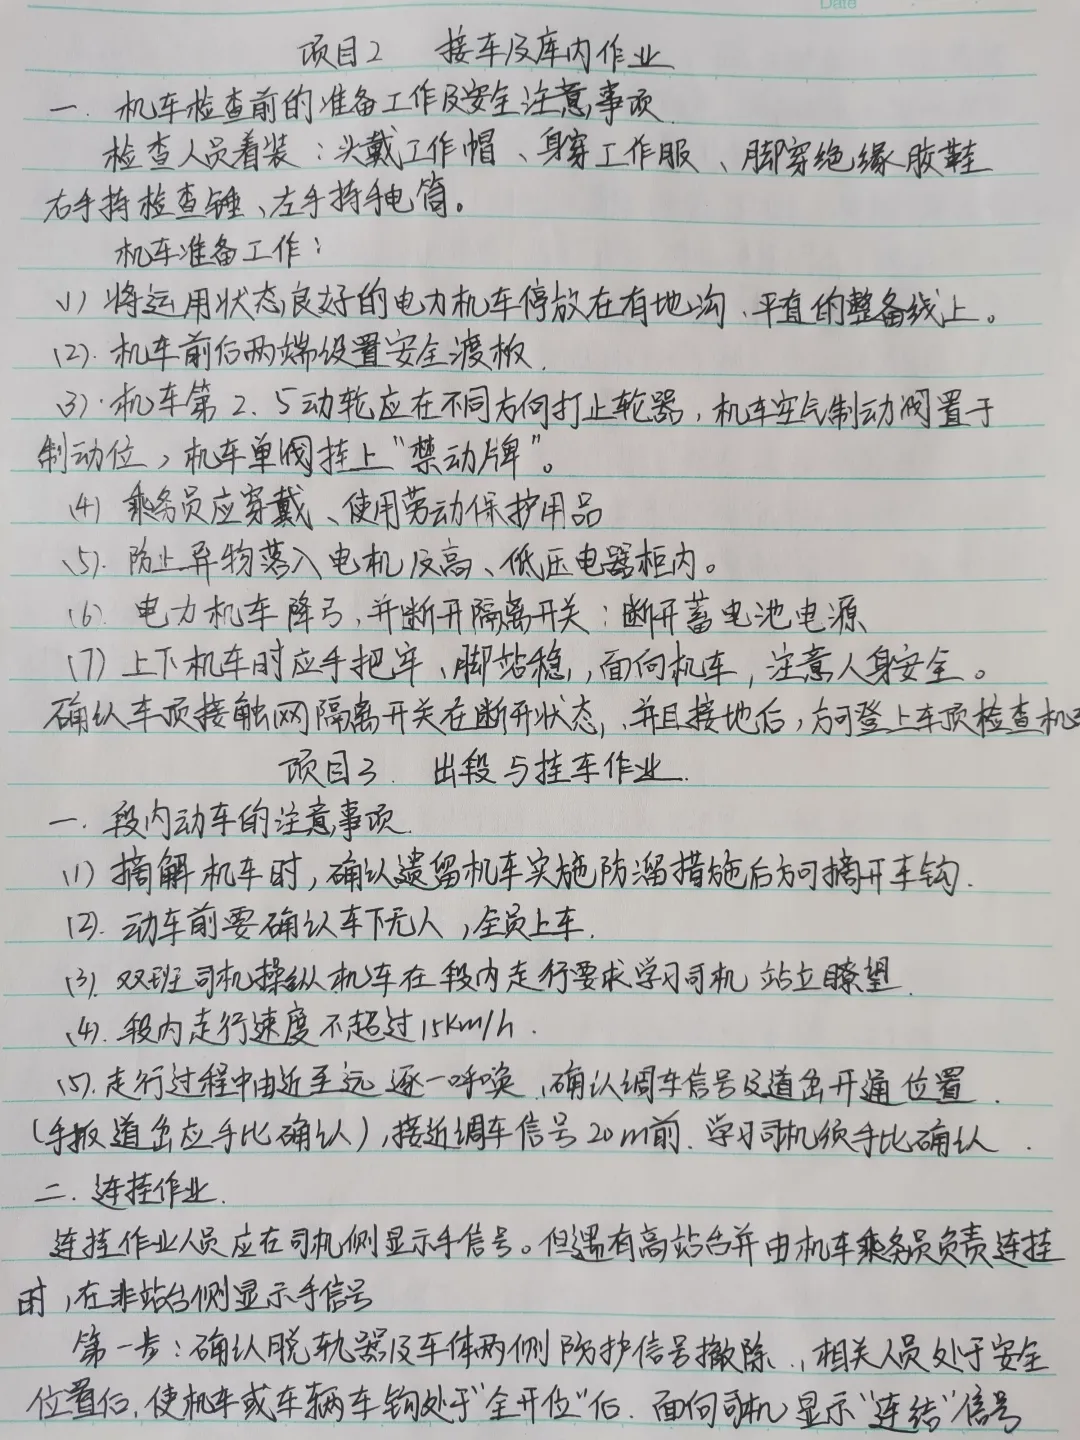 Date
项目2 接车及库内作业
一. 机车检查前的准备工作及安全注意事项.
检查人员着装：头戴工作帽、身穿工作服、脚穿绝缘胶鞋
右手持检查锤、左手持手电筒。
机车准备工作：
(1) 将运用状态良好的电力机车停放在有地沟、平直的整备线上。
(2). 机车前后两端设置安全渡板.
(3). 机车第2.5动轮应在不同方向打止轮器，机车空气制动阀置于
制动位，机车单阀挂上“禁动牌”。
(4) 乘务员应穿戴、使用劳动保护用品
(5). 防止异物落入电机及高、低压电器柜内。
(6). 电力机车降弓，并断开隔离开关：断开蓄电池电源
(7) 上下机车时应手把牢、脚站稳，面向机车，注意人身安全。
确认车顶接触网隔离开关在断开状态，并且接地后，方可登上车顶检查机
项目3. 出段与挂车作业.
一. 段内动车的注意事项.
(1) 摘解机车时，确认遗留机车实施防溜措施后方可摘开车钩.
(2). 动车前要确认车下无人，全员上车.
(3). 双班司机操纵机车在段内走行要求学习司机 站立瞭望.
(4). 段内走行速度不超过15Km/h.
(5). 走行过程中由近至远 逐一呼唤、确认调车信号及道岔开通位置.
(手扳道岔应手比确认)，接近调车信号20m前. 学习司机须手比确认.
二. 连挂作业.
连挂作业人员应在司机侧显示手信号。但遇有高站台并由机车乘务员负责连挂
时，在非站台侧显示手信号
第一步：确认脱轨器及车体两侧防护信号撤除.，相关人员处于安全
位置后，使机车或车辆车钩处于“全开位”后. 面向司机显示“连结”信号